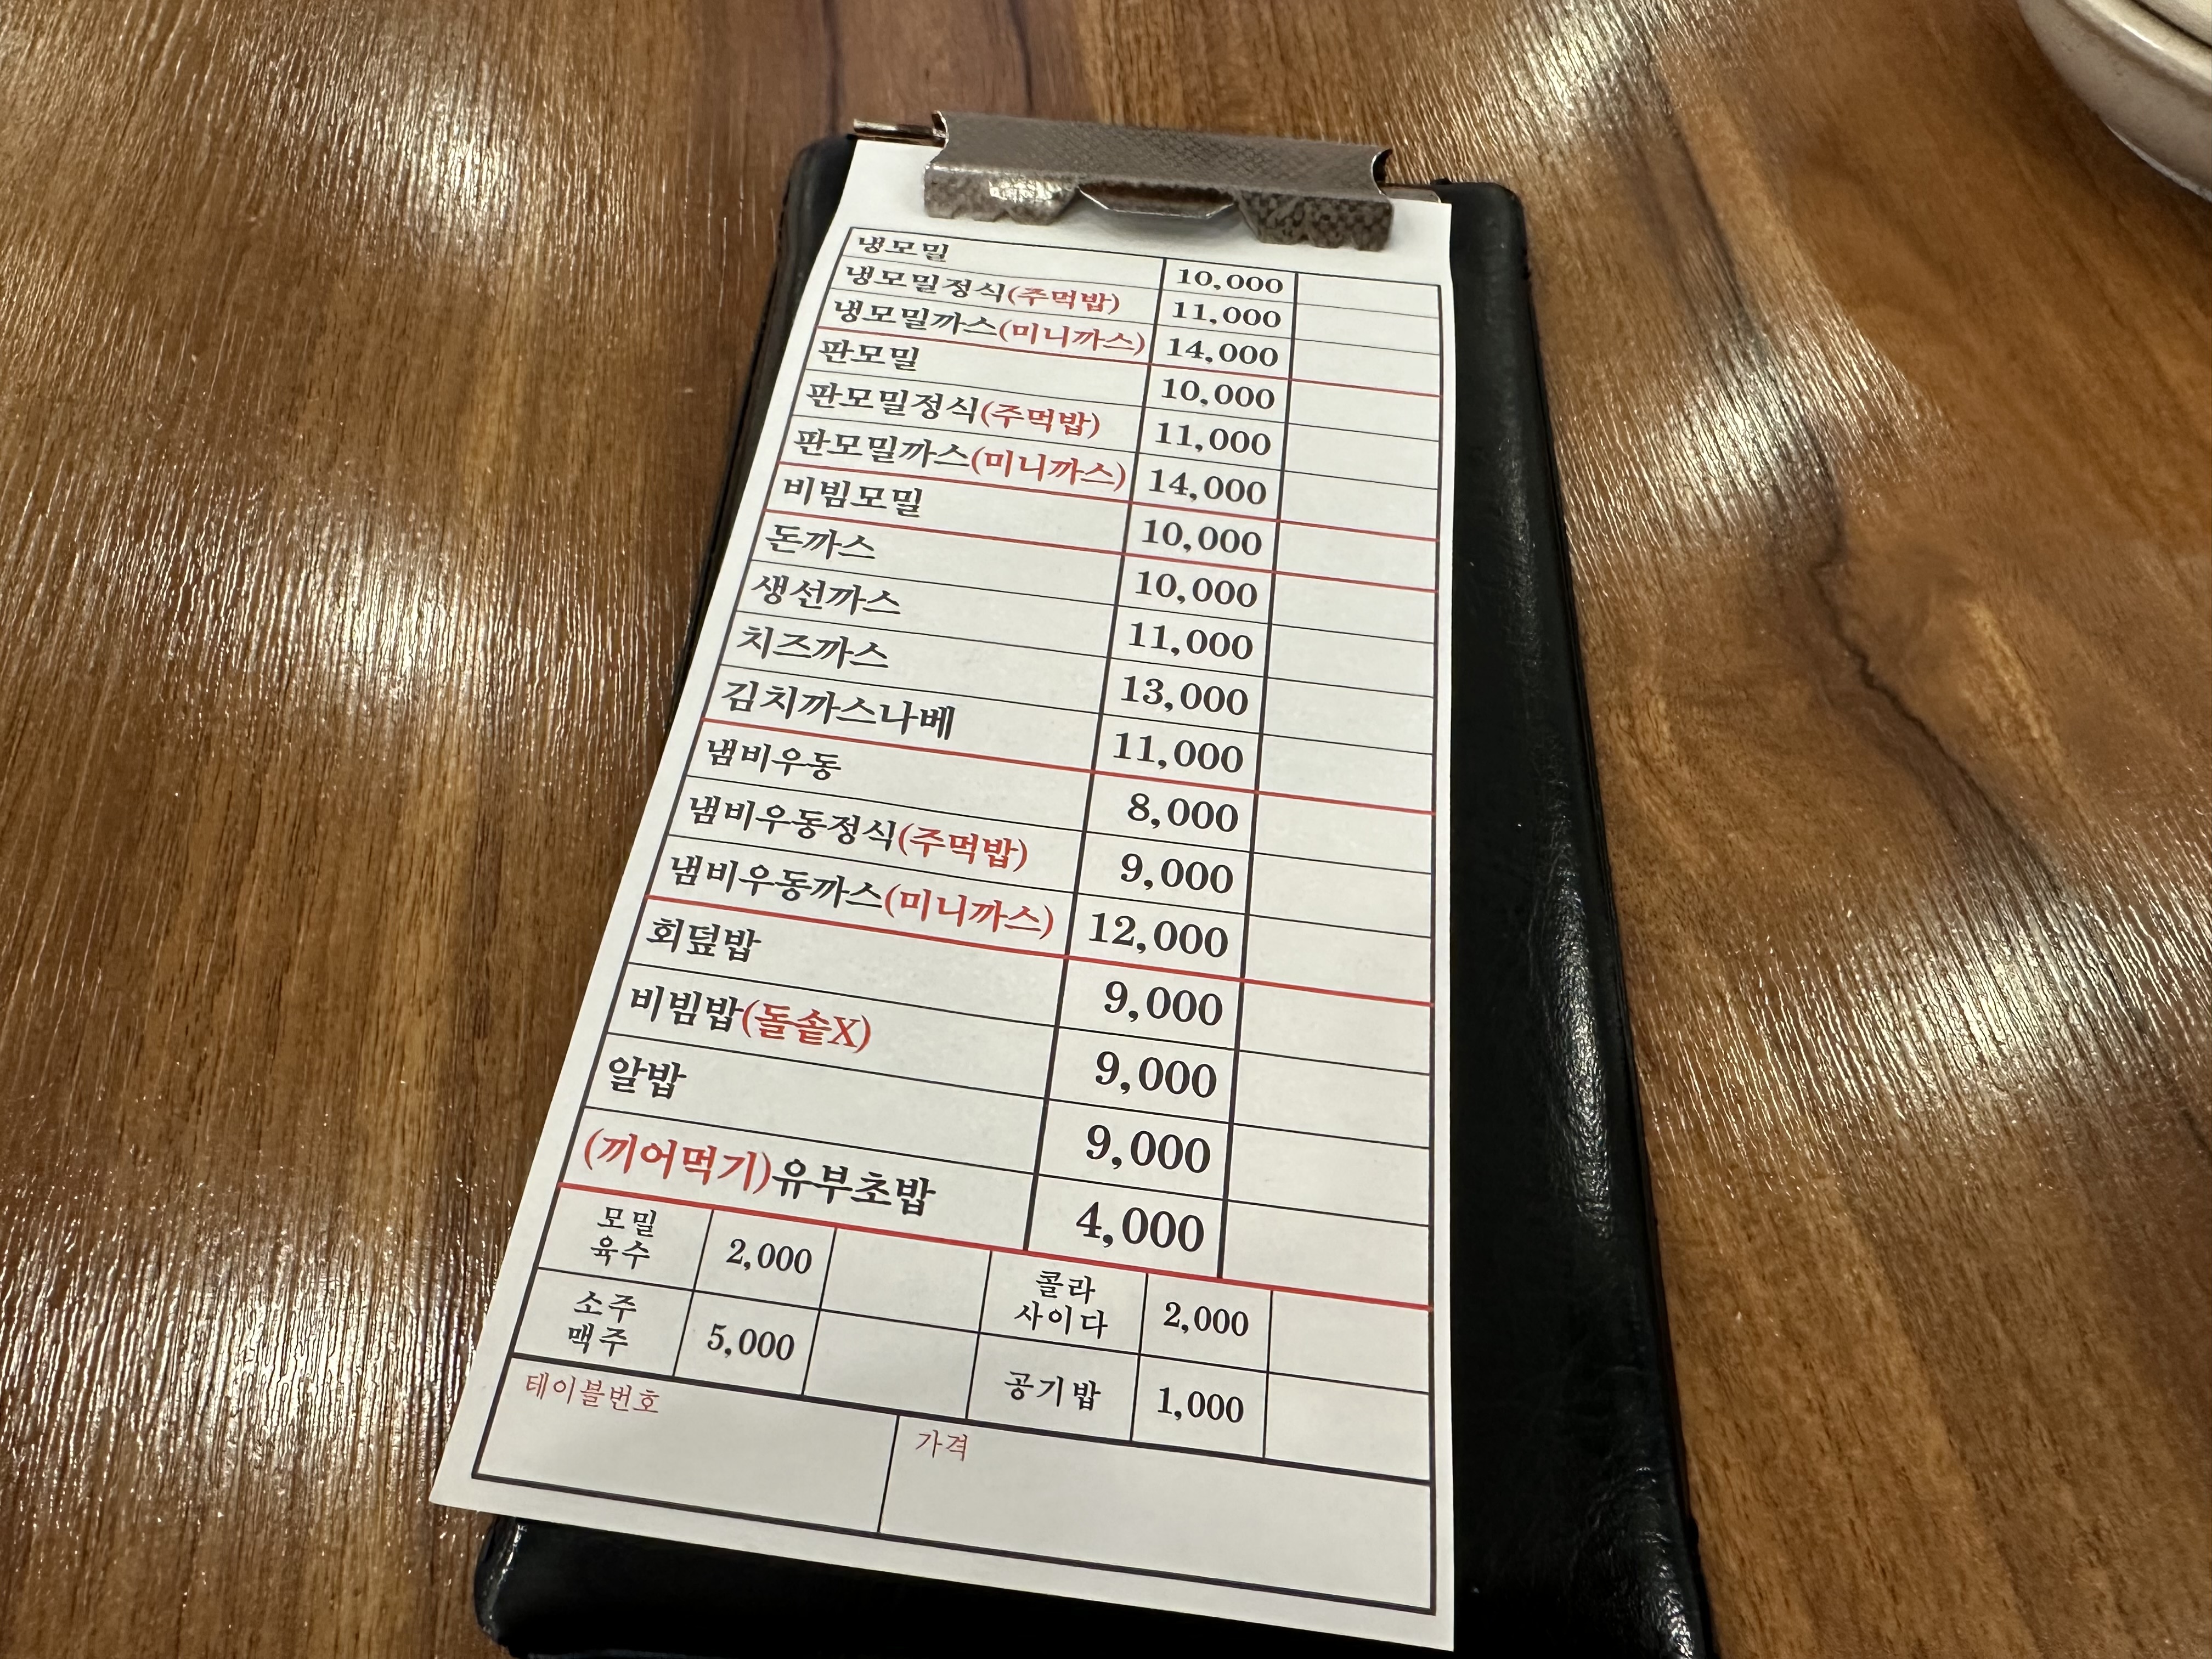 냉모밀 10,000
냉모밀정식(주먹밥) 11,000
냉모밀까스(미니까스) 14,000
판모밀 10,000
판모밀정식(주먹밥) 11,000
판모밀까스(미니까스) 14,000
비빔모밀 10,000
돈까스 10,000
생선까스 11,000
치즈까스 13,000
김치까스나베 11,000
냄비우동 8,000
냄비우동정식(주먹밥) 9,000
냄비우동까스(미니까스) 12,000
회덮밥 9,000
비빔밥(돌솥X) 9,000
알밥 9,000
(끼어먹기)유부초밥 4,000
모밀
육수
2,000
콜라
사이다
2,000
소주
맥주
5,000
공기밥 1,000
테이블번호
가격